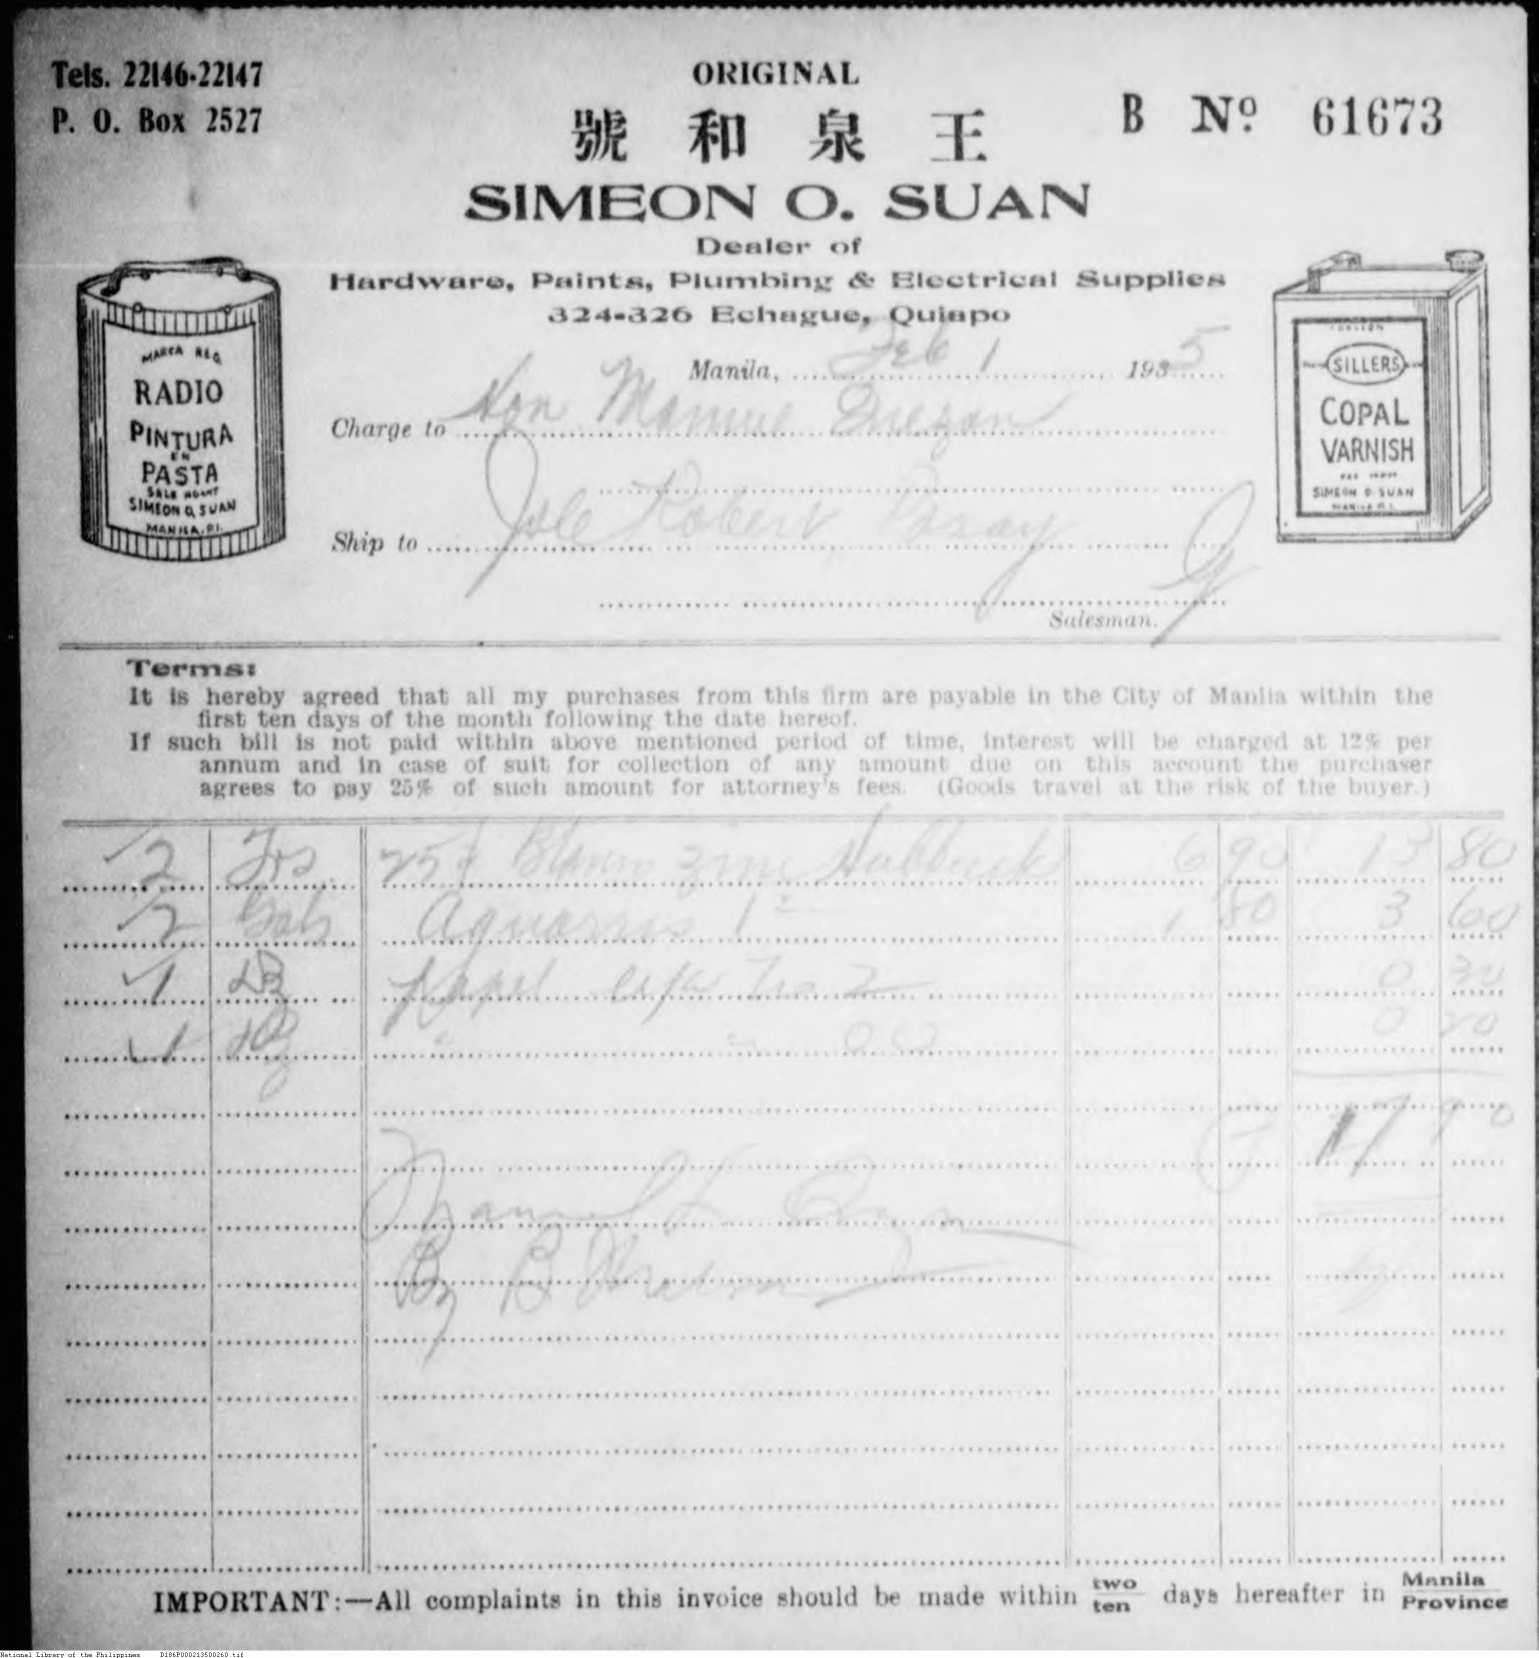 Tels. 22146-22147
P. O. Box 2527
ORIGINAL
B No. 61673
號和泉王
SIMEON O. SUAN
Dealer of
Hardware, Paints, Plumbing & Electrical Supplies
324-326 Echague, Quiapo
MARCA REG.
RADIO
PINTURA
EN
PASTA
SALE AGENT
SIMEON O. SUAN
MANILA, P.I.
SILLERS
COPAL
VARNISH
SIMEON O. SUAN
MANILA P.I.
Manila, Feb 1 1935
Charge to Hon Manuel Quezon
Ship to Robert
Salesman.
Terms:
It is hereby agreed that all my purchases from this firm are payable in the City of Manila within the
first ten days of the month following the date hereof.
If such bill is not paid within above mentioned period of time, interest will be charged at 12% per
annum and in case of suit for collection of any amount due on this account the purchaser
agrees to pay 25% of such amount for attorney's fees. (Goods travel at the risk of the buyer.)
2 25 Hubbuck 6 90 13 80
2 Gals Aguarras 1 80 3 60
1 Papel No 2 0 30
1 " " 00 0 20
17 90
Manuel L Quezon
By B
IMPORTANT:—All complaints in this invoice should be made within two ten days hereafter in Manila Province
National Library of the Philippines D186P000213500260.tif